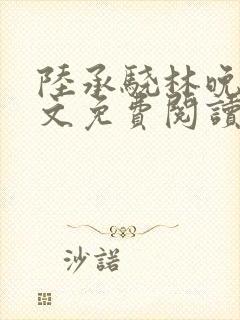 陸承驍林晚
文免費閱讀
沙諾